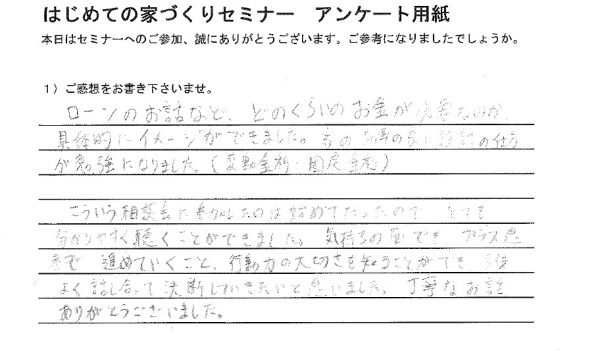 はじめての家づくりセミナー　アンケート用紙
本日はセミナーへのご参加、誠にありがとうございます。ご参考になりましたでしょうか。
1）ご感想をお書き下さいませ。
ローンのお話など、どのくらいのお金が必要なのか、
具体的にイメージができました。の仕方
が勉強になりました。（変動金利・固定金利）
こういう相談会に参加したのは初めてだったので、とても
分かりやすく聴くことができました。気持ちの面でも、プラス思
考で進めていくこと、行動力の大切さを知ることができ
よく話し合って決断していきたいと思いました。丁寧なお話
ありがとうございました。